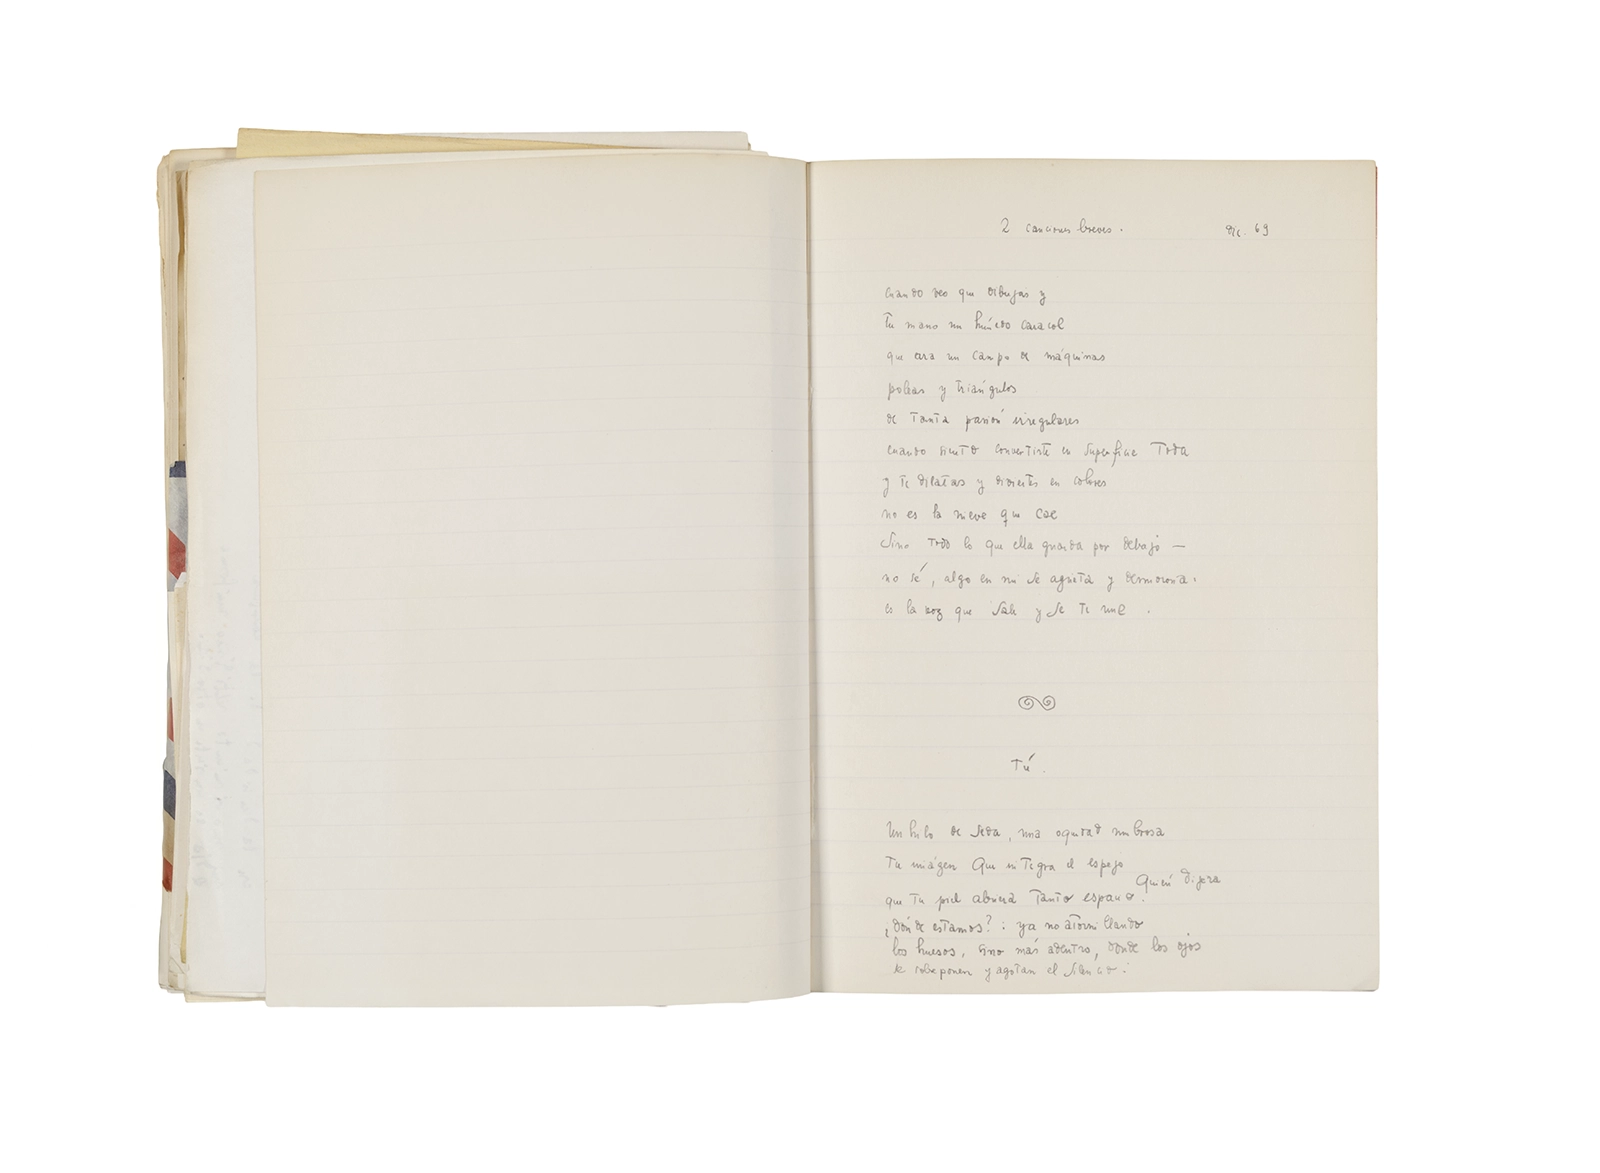 2 canciones breves.
dic. 69
cuando veo que dibujas y
tu mano un húmedo caracol
que ara un campo de máquinas
poleas y triángulos
de tanta pasión irregulares
cuando siento convertirte en superficie toda
y te dilatas y diviertes en colores
no es la nieve que cae
sino todo lo que ella guarda por debajo —
no sé, algo en mi se agrieta y desmorona.
es la voz que sale y se te une.
Tú.
Un hilo de seda, una oquedad umbrosa
tu imágen que integra el espejo
Quién dijera
que tu piel abriera tanto espacio.
¿dónde estamos?: ya no atornillando
los huesos, sino más adentro, donde los ojos
se sobreponen y agotan el silencio.